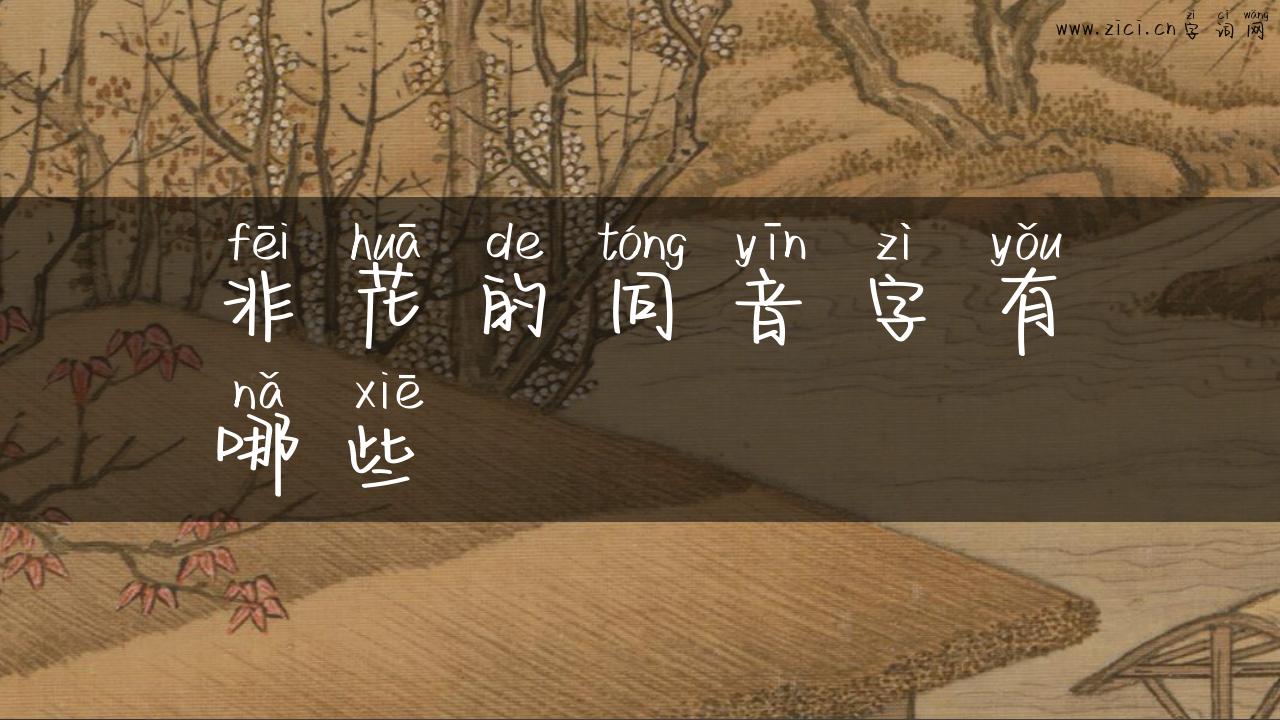 zì cì wǎng
www.zici.cn字词网
fēi huā de tóng yīn zì yǒu
非花的同音字有
nǎ xiē
哪些